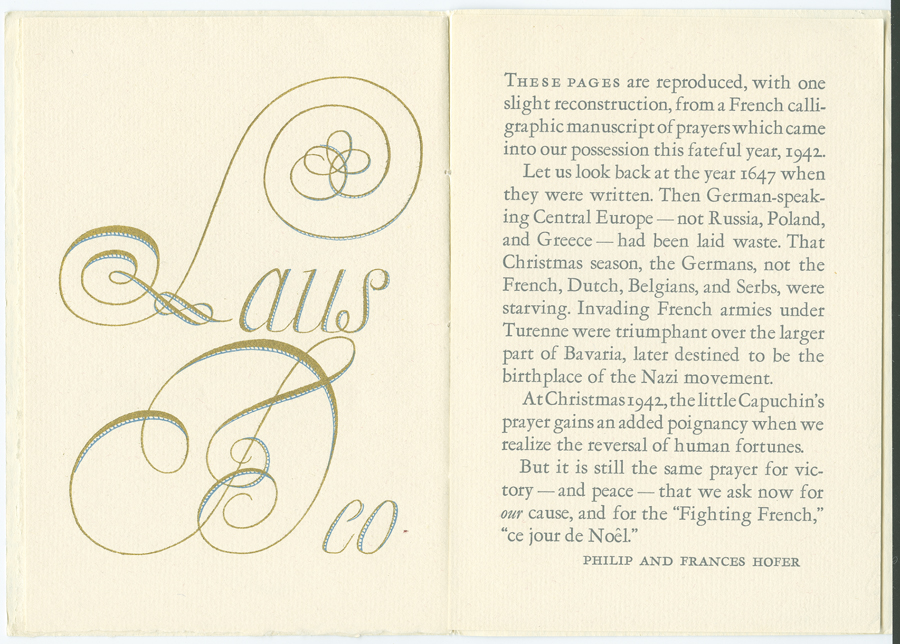 Laus
Deo.
THESE PAGES are reproduced, with one
slight reconstruction, from a French calli-
graphic manuscript of prayers which came
into our possession this fateful year, 1942.
Let us look back at the year 1647 when
they were written. Then German-speak-
ing Central Europe — not Russia, Poland,
and Greece — had been laid waste. That
Christmas season, the Germans, not the
French, Dutch, Belgians, and Serbs, were
starving. Invading French armies under
Turenne were triumphant over the larger
part of Bavaria, later destined to be the
birthplace of the Nazi movement.
At Christmas 1942, the little Capuchin's
prayer gains an added poignancy when we
realize the reversal of human fortunes.
But it is still the same prayer for vic-
tory — and peace — that we ask now for
our cause, and for the “Fighting French,”
“ce jour de Noêl.”
PHILIP AND FRANCES HOFER